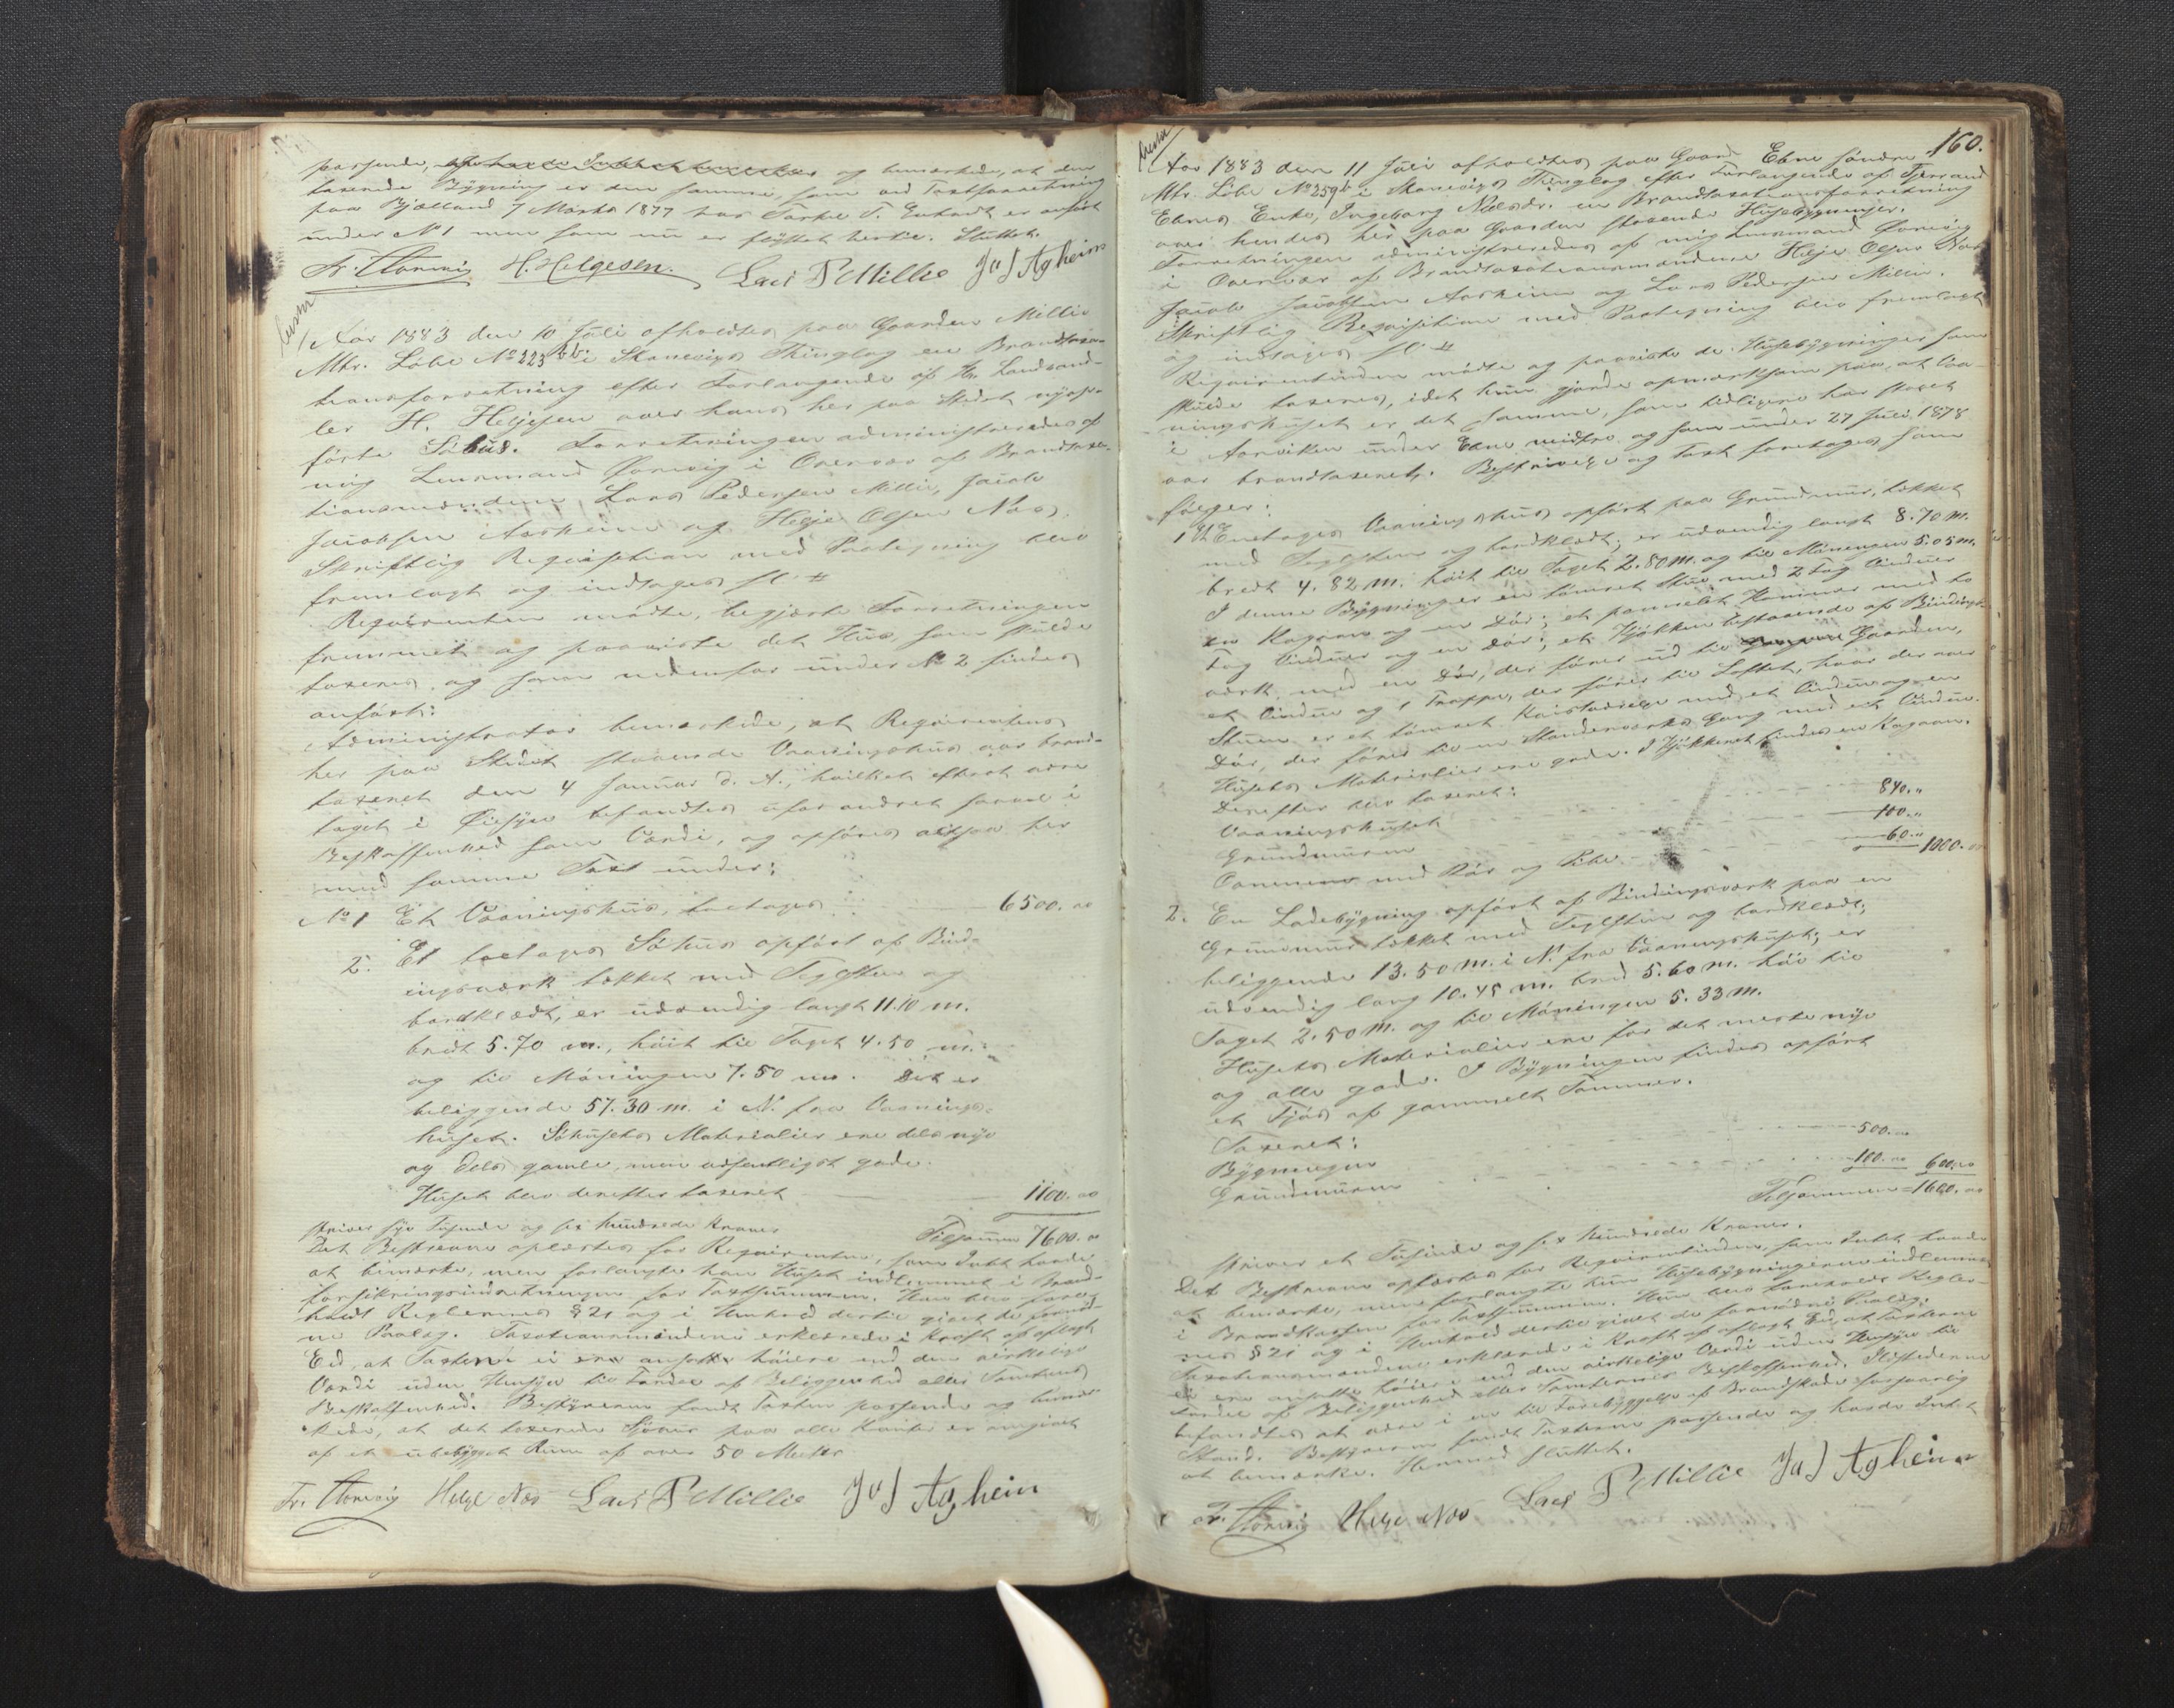 passende, og bemærkede, at den
taxerede Bygning er den samme, som ved Taxtforretning
paa Bjælland 7 Marts 1877 hos Torkel T. er anført
under No 1 men som nu er flyttet hertil. Sluttet.
H. Helgesen. Lars P Millie Ja J Agheim
Aar 1883 den 10 Juli afholdtes paa Gaarden Millie
Mtr. Löbe No 223 b i Skonevigs Thinglag en Brandtaxa-
tionsforretning efter Forlangende af Hr. Landhand-
ler H. Helgesen over hans her paa Stedet nyop-
førte Söhus. Forretningen administreredes af
mig Lensmand i Overvær af Brandtaxa-
tionsmændene Lars Pedersen Millie, Jacob
Jacobsen Aarheim og Helje Olsen Næs.
Skriftlig Reqvisition med Paategning blev
fremlagt og indtages sl.
Reqvirenten mødte, begjærte Forretningen
fremmet og paaviste det Hus, som skulde
taxeres, og som nedenfor under No 2 findes
anført:
Administrator bemærkede, at Reqvirentens
her paa Stedet staaende Vaaningshus var brand-
taxeret den 4 Januar d. A., hvilket efter at være
taget i Øiesyn befandtes uforandret saavel i
Beskaffenhed som Værdi, og opføres altsaa her
med samme Taxt under:
No 1 Et Vaaningshus, toetages 6500. 00
2. Et toetages Söhus opført af Bind-
ingsværk tækket med Teglsten og
bordklædt, er udvendig langt 11.10 m.
bredt 5.70 m., höit til Taget 4.50 m.
og til Möningen 7.50 m. Det er
beliggende 57.30 m. i N. fra Vaanings-
huset. Söhusets Materialier ere dels nye
og dels gamle, men væsentligst gode.
Huset blev derefter taxeret 1100. 00
Tilsammen 7600. 00
skriver syv Tusinde og sex hundrede Kroner
Det Beskrevne oplæstes for Reqvirenten, som Intet havde
at bemærke, men forlangte han Huset indlemmet i Brand-
forsikringsindretningen for Taxtsummen. Han blev fore-
holdt Reglernes § 21 og i Henhold dertil givet de fornöd-
ne Paalæg. Taxationsmændene erklærede i Kraft af aflagt
Eed, at Taxten ei er ansatte höiere end den virkelige
Værdi uden Hensyn til Fordel af Beliggenhed eller Tomtens
Beskaffenhed. Bestyreren fandt Taxten passende og bemær-
kede, at det taxerede Söhus paa alle Kanter er omgivet
af et ubebygget Rum af over 50 Meter
Helge Næs Lars P Millie Ja J Agheim
160.
Aar 1883 den 11 Juli afholdtes paa Gaard Ebne söndre
Mtr. Löbe No 259 b i Skonevigs Thinglag efter Forlangende af Tjerrand
Ebnes Enke, Ingeborg Nilsdr. en Brandtaxationsforretning
over hendes her paa Gaarden staaende Husebygninger.
Forretningen administreredes af mig Lensmand
i Overvær af Brandtaxationsmændene Helje Olsen Næs
Jacob Jacobsen Aarheim og Lars Pedersen Millie.
Skriftlig Reqvisition med Paategning blev fremlagt
og indtages sl.
Reqvirentinden mødte og paaviste de Husebygninger som
skulde taxeres, idet hun gjorde opmærksom paa, at Vaa-
ningshuset er det samme, som tidligere har staaet
i Aarviken under Ebne midtre og som under 27 Juli 1878
var brandtaxeret. Beskrivelse og Taxt foretages som
følger:
1. Et Enetages Vaaningshus opført paa Grundmur, tækket
med Teglsten og bordklædt; er udvendig langt 8.70 m.
bredt 4.82 m. höit til Taget 2.80 m. og til Möningen 5.05 m.
I denne Bygning er en tömret Stue med 2 Fag Vinduer
en Kogovn og en Dör; et panelet Kammer med to
Fag Vinduer og en Dör; et Kjökken bestaaende af Bindings-
værk med en Dör, der fører ud til Gaarden,
et Vindue og 1 Trappe, der fører til Loftet, hvor der over
Stuen er et tömret Kvistværelse med et Vindue og en
Dör, der fører til en Standerværks Gang med et Vindue.
Husets Materialier ere gode. I Kjökkenet findes en Kogovn.
Derefter blev taxeret:
Vaaningshuset 840. "
Grundmuren 100. "
Ovnene med Rör og Pibe 60. " 1000. 00
2. En Ladebygning opført af Bindingsværk paa en
Grundmur tækket med Teglsten og bordklædt;
beliggende 13.50 m. i N. fra Vaaningshuset; er
udvendig lang 10.45 m. bred 5.60 m. höi til
Taget 2.50 m. og til Möningen 5.33 m.
Husets Materialier ere for det meste nye
og alle gode. I Bygningen findes opført
et Fjös af gammelt Tömmer.
Taxeret:
Bygningen 500. 00
Grundmuren 100. 00 600. 00
Tilsammen 1600. 00
skriver et Tusinde og sex Hundrede Kroner.
Det Beskrevne oplæstes for Reqvirentinden, som Intet havde
at bemærke, men forlangte hun Husebygningerne indlemmet
i Brandkassen for Taxtsummen. Hun blev foreholdt Regler-
nes § 21 og i Henhold dertil givet de fornödne Paalæg.
Taxationsmændene erklærede i Kraft af aflagt Eed, at Taxterne
ei ere ansatte höiere end den virkelige Værdi uden Hensyn til
Fordel af Beliggenhed eller Tomternes Beskaffenhed. Ildstederne
befandtes at være i en til Forebyggelse af Brandskade forsvarlig
Stand. Bestyreren fandt Taxterne passende og havde Intet
at bemærke. Hermed sluttet.
Helge Næs Lars P Millie Ja J Agheim